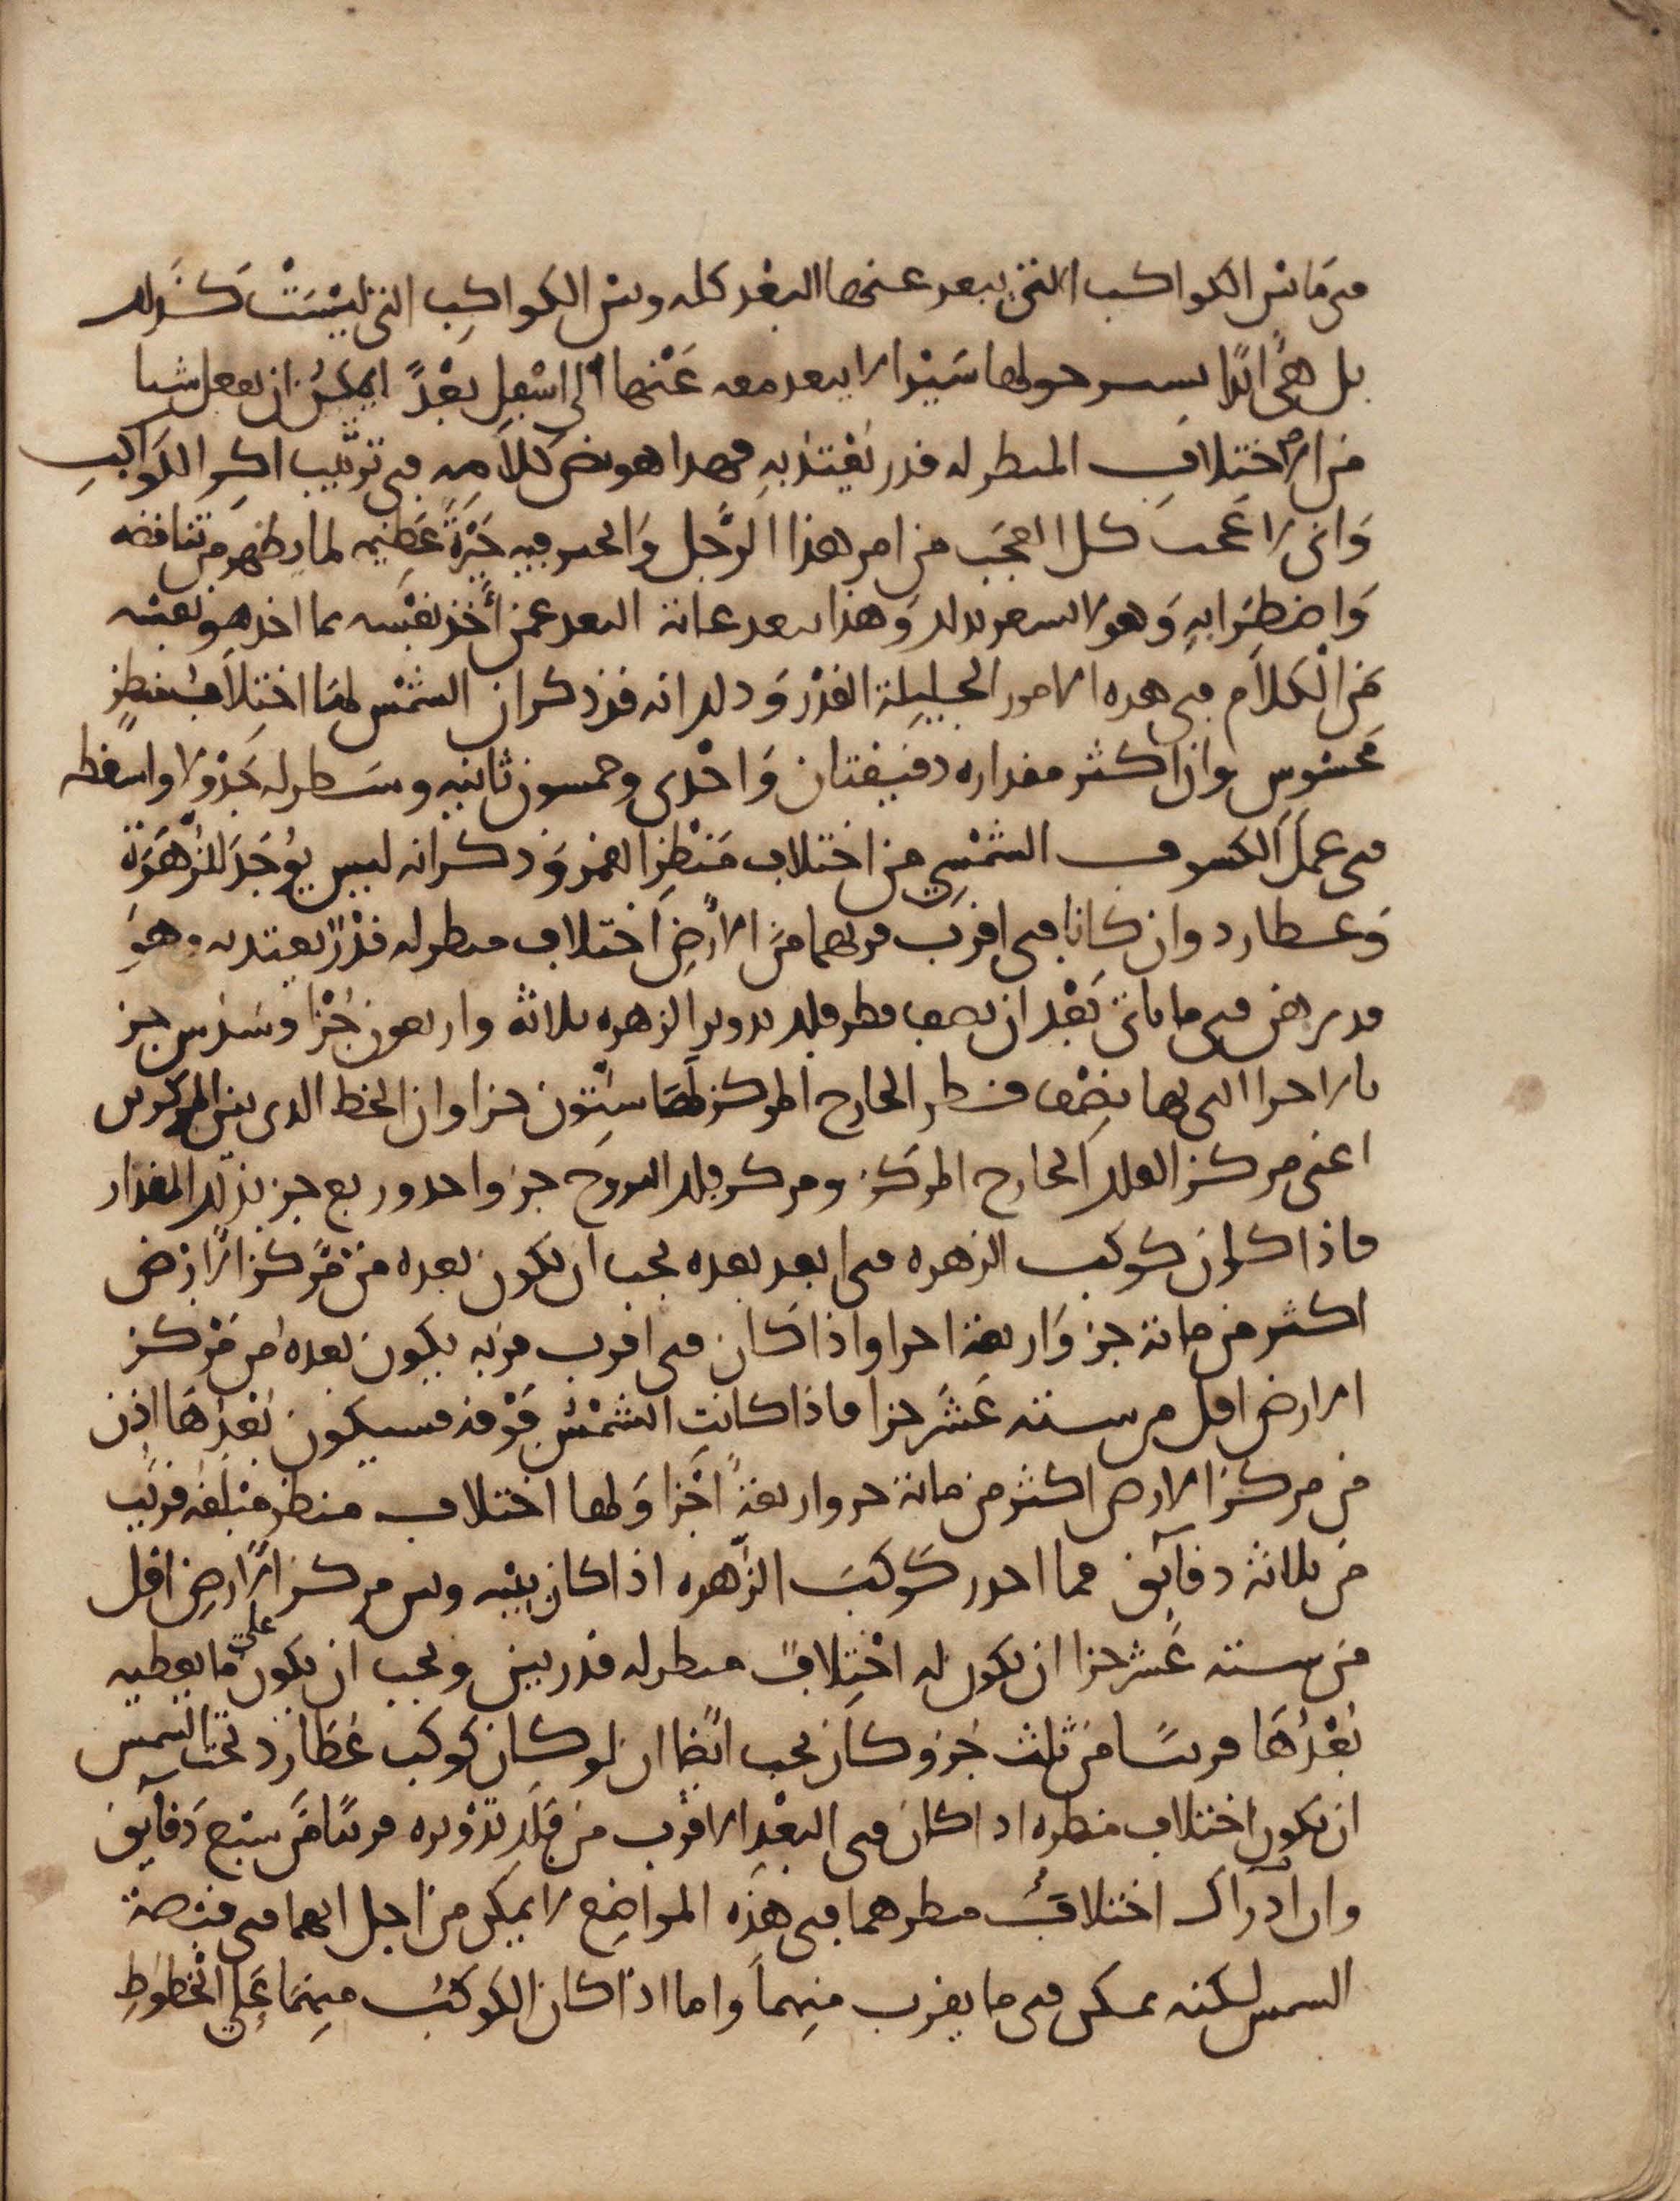 فى ما بين الكواكب التى يبعد عنها البعد كله وبين الكواكب التى ليست كذلك
بل هى ابدا يسير حولها سيرا لا يبعد معه عنها الى اسفل بعدا يمكن ان يفعل شيا
من الاختلاف المنظر له قدر يعتد به فهذا هو نص كلامه فى ترتيب اكر الكواكب
وانى لاعجب كل العجب من امر هذا الرجل واتحير فيه حيرة عظيمه لما يظهر من تناقضه
واضطرابه وهو لا يشعر بذلك وهذا يبعد غاية البعد عمن أخذ نفسه بما اخذ هو نفسه
من الكلام فى هذه الامور الجليلة القدر وذلك انه قد ذكر ان الشمس لها اختلاف منظر
محسوس وان اكثر مقداره دقيقتان واحدى وخمسون ثانيه وسطر له جدولا واسقطه
فى عمل الكسوف الشمسى من اختلاف منظر القمر وذكر انه ليس يوجد للزهرة
وعطارد وان كانا فى اقرب قربهما من الارض اختلاف منظر له قدر يعتد به وهو
قد برهن فى ما ياتى بعد ان نصف قطر فلك تدوير الزهره ثلاثة واربعون جزا وسدس جز
بالاجزا التى بها نصف قطر الخارج المركز لها ستون جزا وان الخط الذى بين المركزين
اعنى مركز الفلك الخارج المركز ومركز فلك البروج جز واحد وربع جز بذلك المقدار
فاذا كان كوكب الزهره فى ابعد بعده يجب ان يكون بعده من مركز الارض
اكثر من مائة جز واربعة اجزا واذا كان فى اقرب قربه يكون بعده من مركز
الارض اقل من سته عشر جزا فاذا كانت الشمس فوقه فسيكون بعدها اذن
من مركز الارض اكثر من مائة جز واربعة اجزا ولها اختلاف منظر مبلغه قريب
من ثلاثة دقآيق فما احدر كوكب الزهره اذا كان بينه وبين مركز الارض اقل
من سته عشر جزا ان يكون له اختلاف منظر له قدر بين ويجب ان يكون على ما يعطيه
بعدها قريبا من ثلث جز وكان يجب ايضا ان لو كان كوكب عطارد تحت الشمس
ان يكون اختلاف منظره اذا كان فى البعد الاقرب من فلك تدويره قريبا من سبع دقآيق
وان ادراك اختلاف منظرهما فى هذه المواضع لا يمكن من اجل انهما فى قبضة
الشمس لكنه يمكن فى ما يقرب منهما واما اذا كان الكوكب منهما على الخطوط